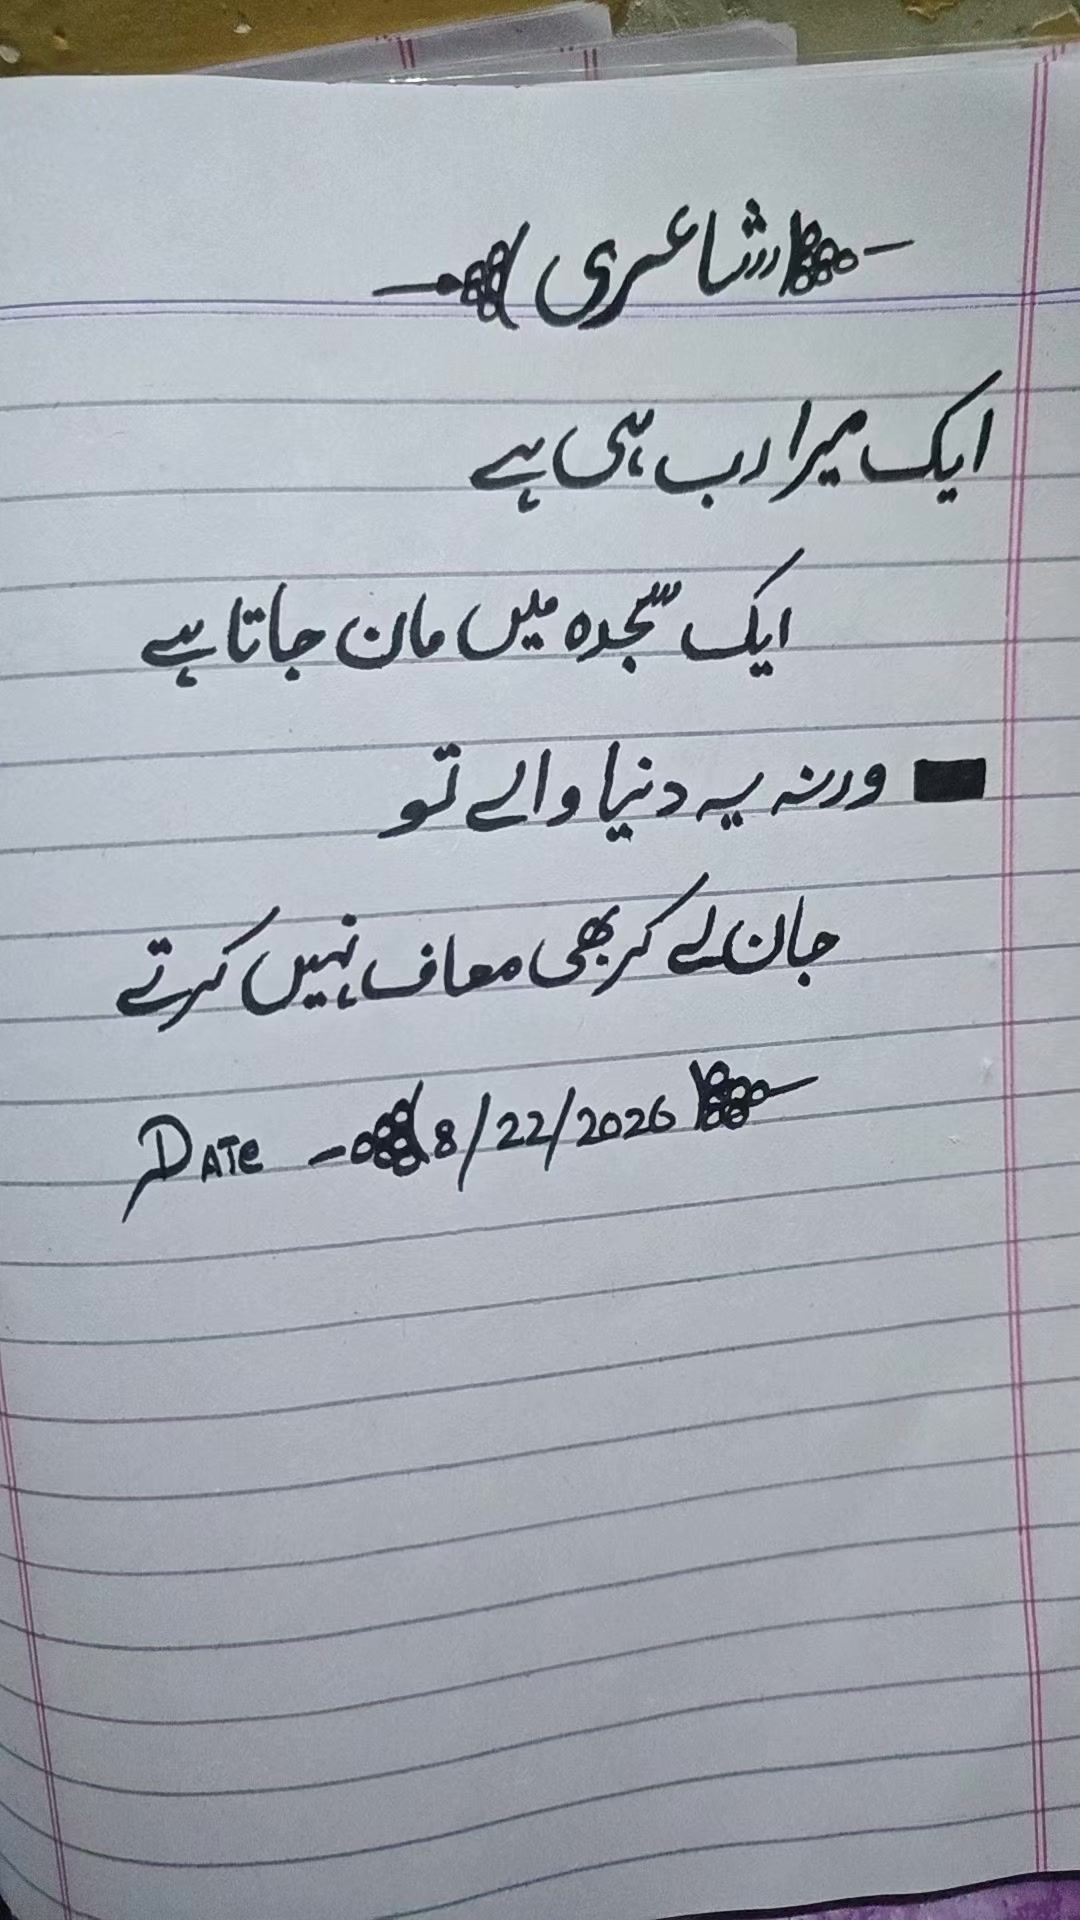 شاعری
ایک میرا رب ہی ہے
ایک سجدہ میں مان جاتا ہے
ورنہ یہ دنیا والے تو
جان لے کر بھی معاف نہیں کرتے
DATe 8/22/2026